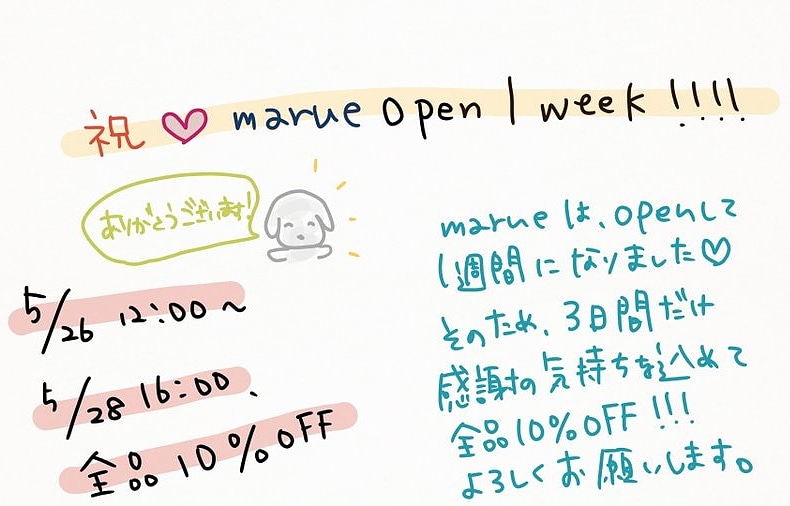 祝♡marue open 1 week !!!!
ありがとうございます!
5/26 12:00〜
5/28 16:00、
全品10%OFF
marueは、openして
1週間になりました♡
そのため、3日間だけ
感謝の気持ちを込めて
全品10%OFF!!!
よろしくお願いします。